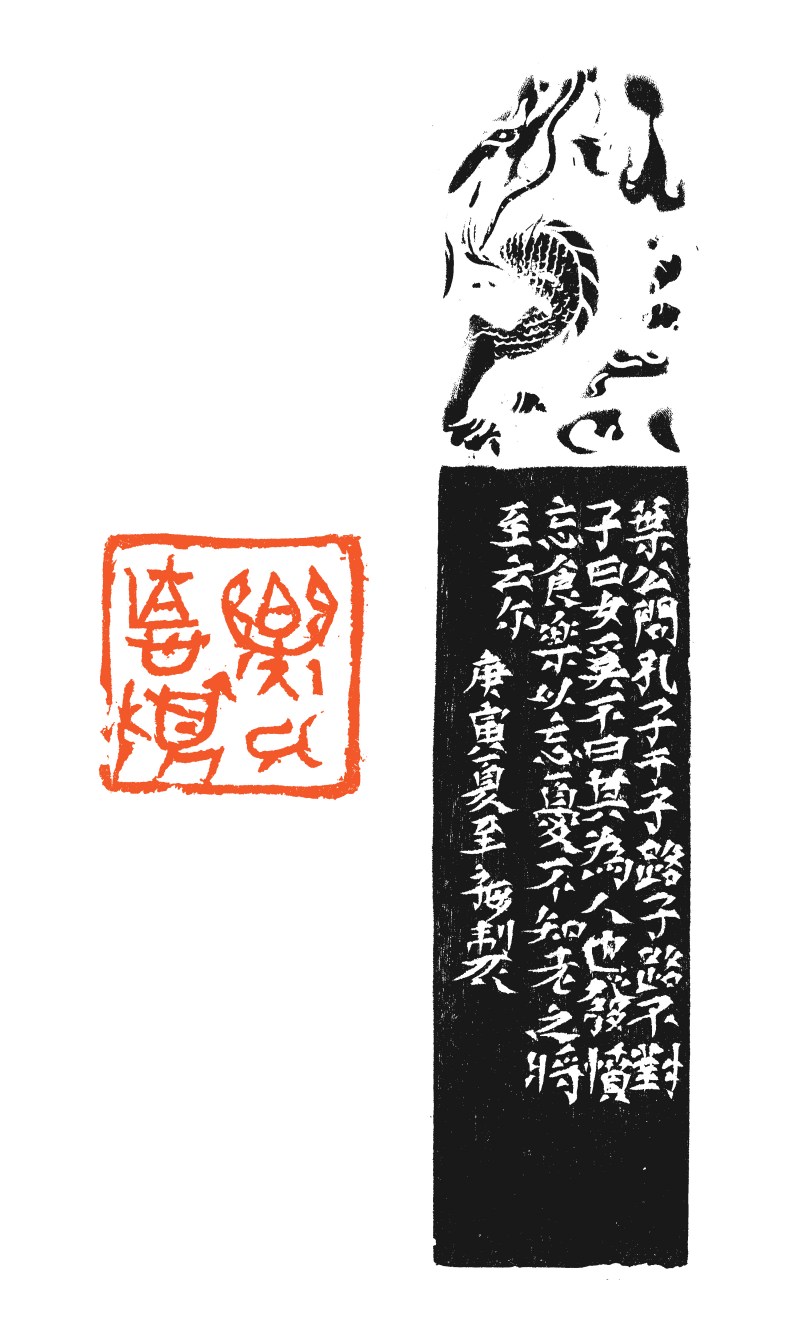 葉公問孔子于子路子路不對
子曰女奚不曰其為人也發憤
忘食樂以忘憂不知老之將
至云尔
庚寅夏至製
樂以
忘憂